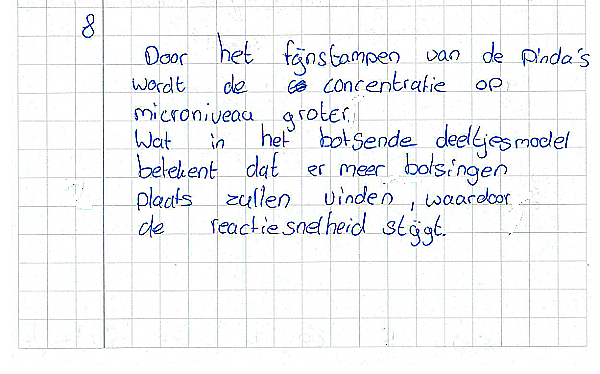 8
Door het fijnstampen van de pinda's
wordt de concentratie op
microniveau groter.
Wat in het botsende deeltjesmodel
betekent dat er meer botsingen
plaats zullen vinden, waardoor
de reactiesnelheid stijgt.